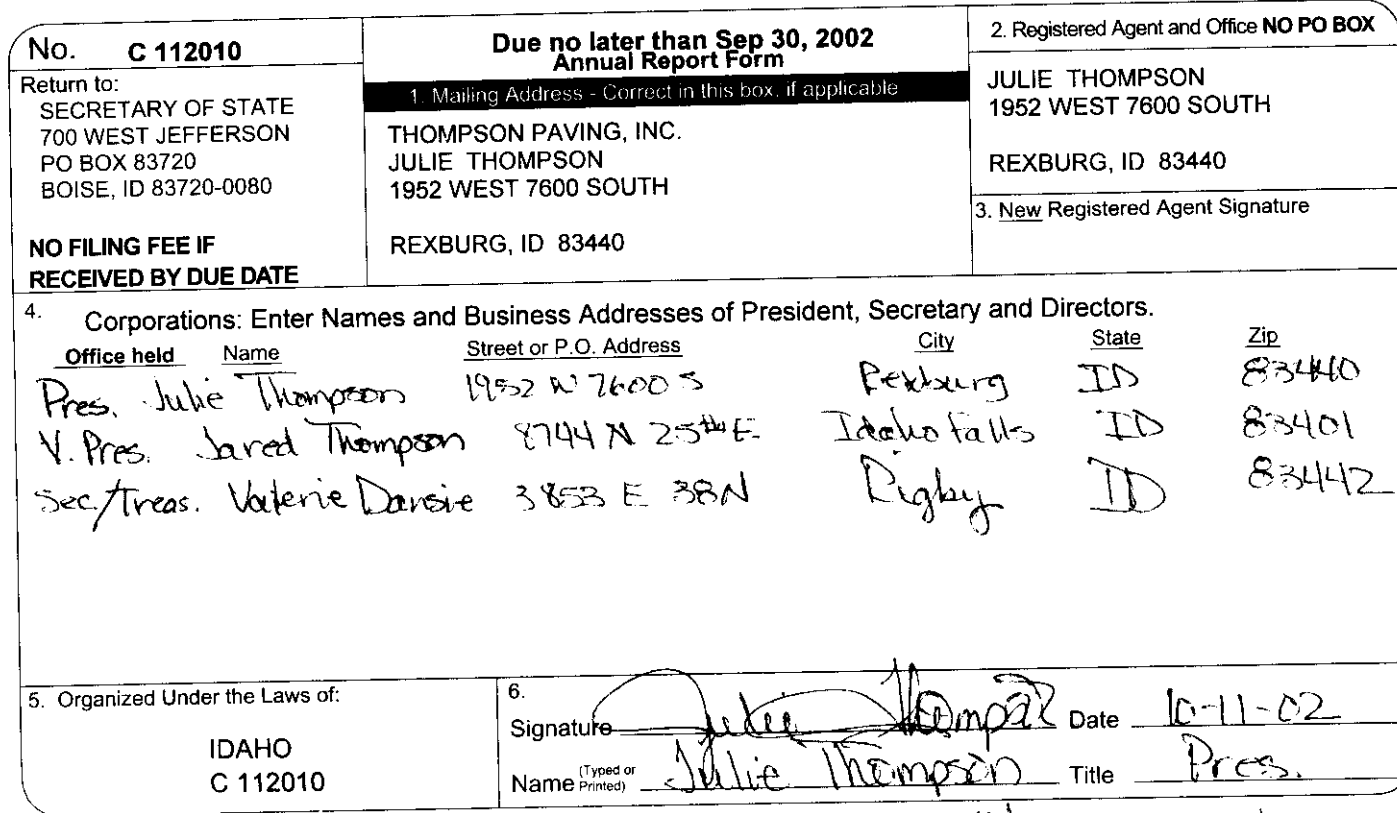 No. C 112010
Return to:
SECRETARY OF STATE
700 WEST JEFFERSON
PO BOX 83720
BOISE, ID 83720-0080
NO FILING FEE IF
RECEIVED BY DUE DATE
Due no later than Sep 30, 2002
Annual Report Form
1. Mailing Address - Correct in this box, if applicable
THOMPSON PAVING, INC.
JULIE THOMPSON
1952 WEST 7600 SOUTH
REXBURG, ID 83440
2. Registered Agent and Office NO PO BOX
JULIE THOMPSON
1952 WEST 7600 SOUTH
REXBURG, ID 83440
3. New Registered Agent Signature
4. Corporations: Enter Names and Business Addresses of President, Secretary and Directors.
Office held Name Street or P.O. Address City State Zip
Pres. Julie Thompson 1952 W 7600 S Rexburg ID 83440
V. Pres. Jared Thompson 8744 N 25th E Idaho Falls ID 83401
Sec/Treas. Valerie Dansie 3853 E 38N Rigby ID 83442
5. Organized Under the Laws of:
IDAHO
C 112010
6.
Signature Julie Thompson Date 10-11-02
Name (Typed or Printed) Julie Thompson Title Pres.